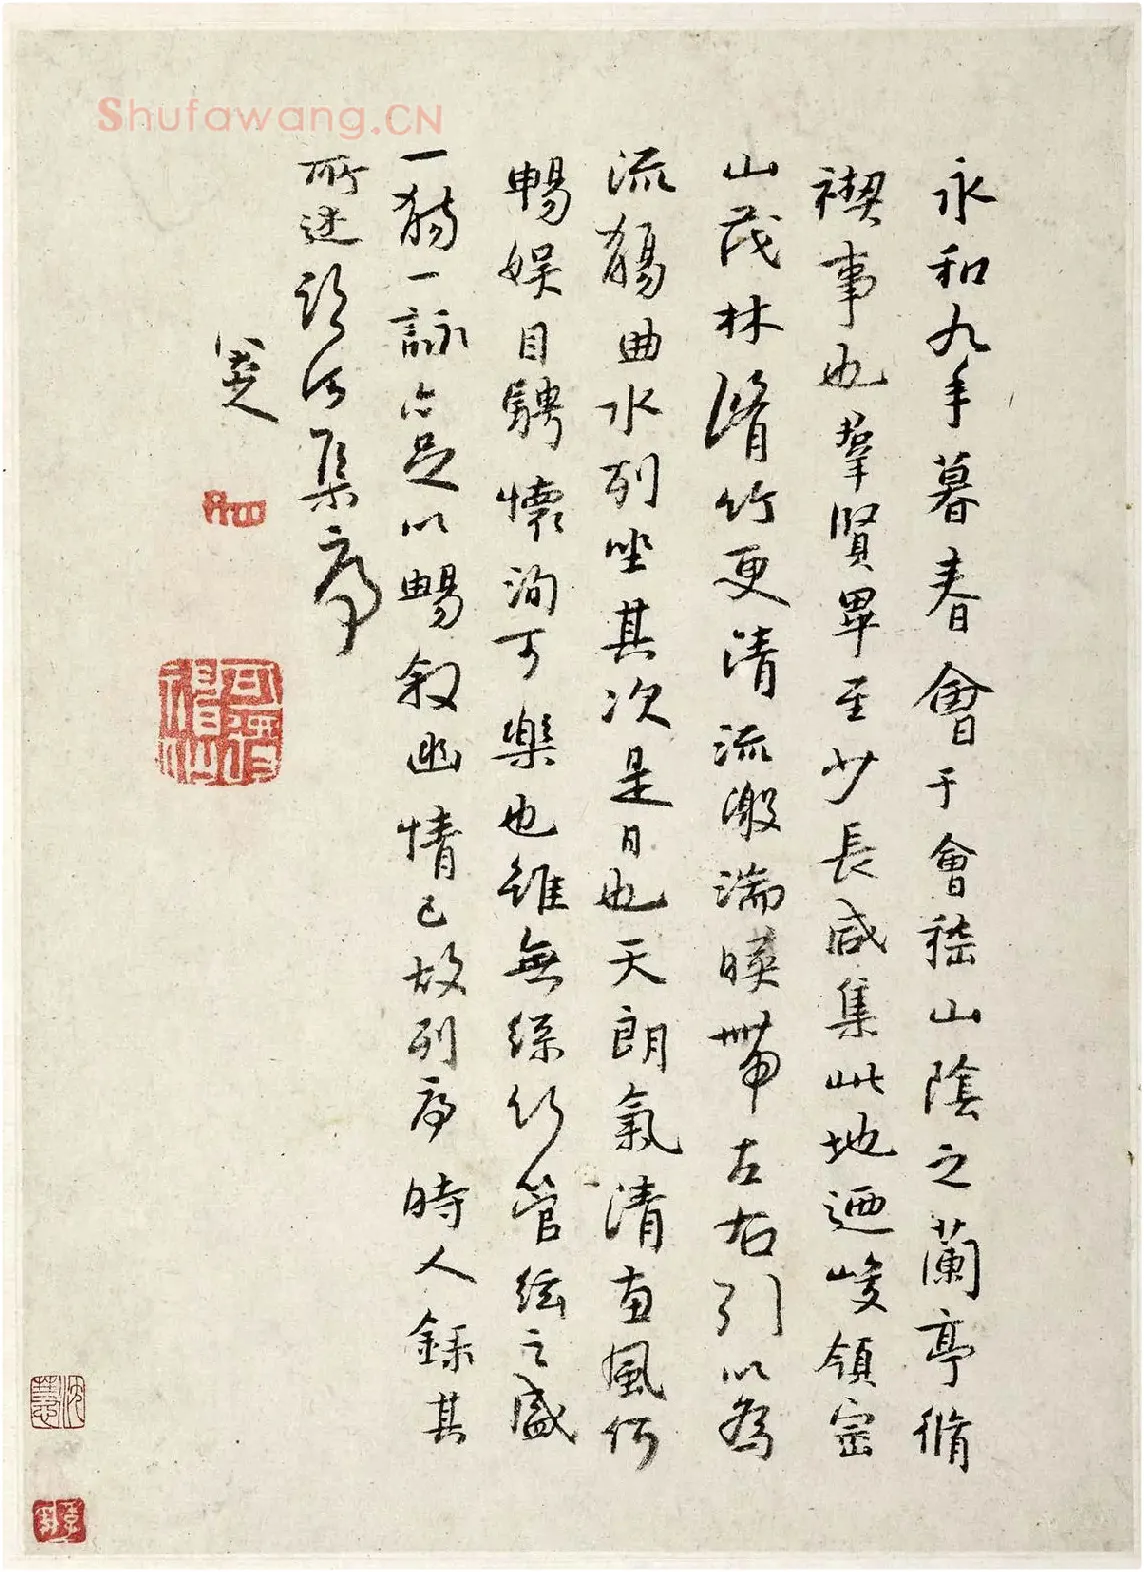 Shufawang.CN
永和九年暮春會于會稽山陰之蘭亭脩
禊事也羣賢畢至少長咸集此地迺峻領崇
山茂林脩竹更清流激湍暎帶左右引以為
流觴曲水列坐其次是日也天朗氣清惠風何
暢娛目騁懷洵可樂也雖無絲竹管絃之盛
一觴一詠亦足以暢叙幽情已故列序時人錄其
所述臨河集序
八大山人
可得神仙